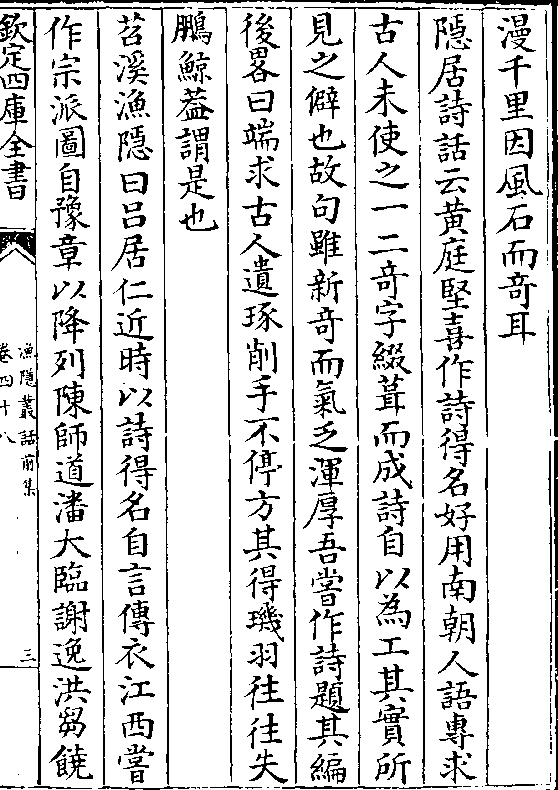 漫千里因風石而竒耳
隠居詩話云黄庭堅喜作詩得名好用南朝人語專求
古人未使之一二竒字綴葺而成詩自以為工其實所
見之僻也故句雖新竒而氣乏渾厚吾嘗作詩題其編
後畧曰端求古人遺琢削手不停方其得璣羽往往失
鵬鯨葢謂是也
苕溪漁隠曰吕居仁近時以詩得名自言傳衣江西嘗
作宗派圖自豫章以降列陳師道潘大臨謝逸洪芻饒
欽定四庫全書
漁隠叢話前集
卷四十八
三